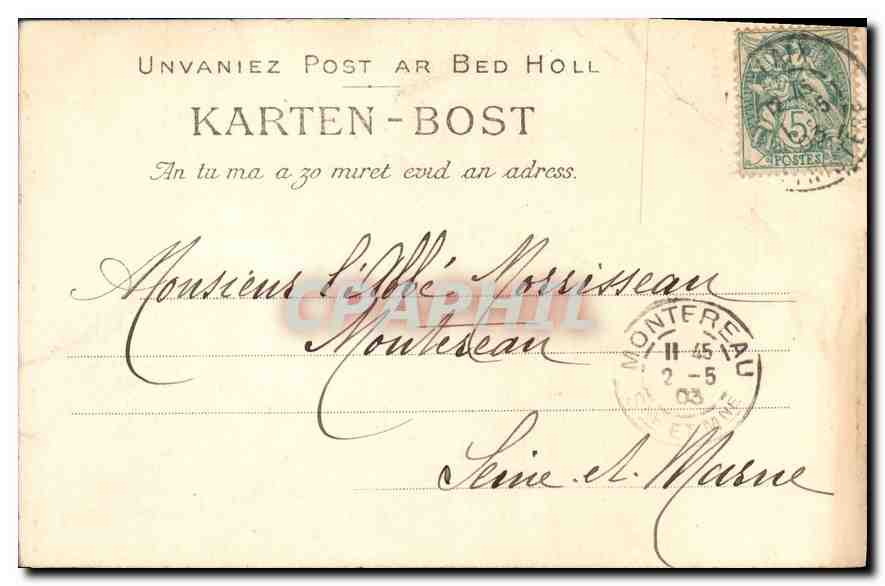 UNVANIEZ POST AR BED HOLL
KARTEN-BOST
An tu ma a zo miret evid an adress.
5
POSTES
Monsieur l'Abbé Morrisseau
CPAPHIL
Montereau
MONTEREAU
11 45
2 - 5
03
NE ET MNE
Seine et Marne